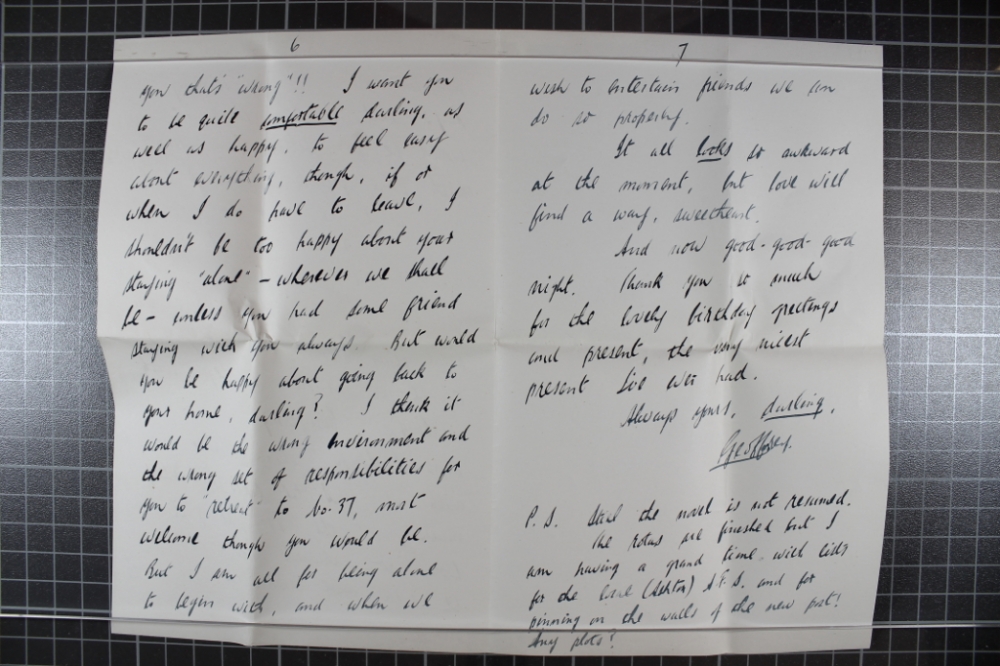 6
you that's "wrong"!! I want you
to be quite comfortable darling, as
well as happy, to feel easy
about everything, though, if or
when I do have to leave, I
shouldn't be too happy about your
staying "alone" – wherever we shall
be – unless you had some friend
staying with you always. But would
you be happy about going back to
your home, darling? I think it
would be the wrong environment and
the wrong set of responsibilities for
you to "retreat" to No. 37, most
welcome though you would be.
But I am all for being alone
to begin with, and when we
7
wish to entertain friends we can
do so properly.
It all looks so awkward
at the moment, but love will
find a way, sweetheart.
And now good-good-good
night. Thank you so much
for the lovely birthday greetings
and present, the very nicest
present I've ever had.
Always yours, darling,
Geoffrey.
P.S. Still the novel is not resumed.
The rotas are finished but I
am having a grand time with lists
for the local (Ashton) A.F.S. and for
pinning on the walls of the new post!
Any plots?